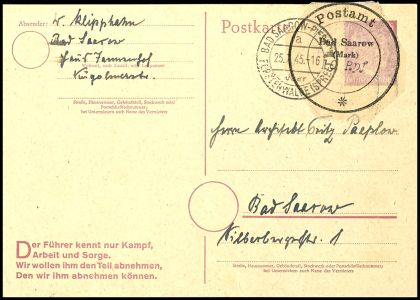 Absender: W. Klipphahn
Bad Saarow
Haus Tannenhof
Straße, Hausnummer, Gebäudeteil, Stockwerk oder
Postschließfachnummer;
bei Untermietern auch Name des Vermieters
Postkarte
BAD SAAROW-PIESKOW
a
25. 45.-16
FÜRSTENWALDE (SPREE) LAND
Postamt
Bad Saarow
(Mark)
Herrn Architekt Fritz
Bad Saarow
Silberbergstr. 1
Straße, Hausnummer, Gebäudeteil, Stockwerk oder Postschließfachnummer;
bei Untermietern auch Name des Vermieters
Der Führer kennt nur Kampf,
Arbeit und Sorge.
Wir wollen ihm den Teil abnehmen,
Den wir ihm abnehmen können.